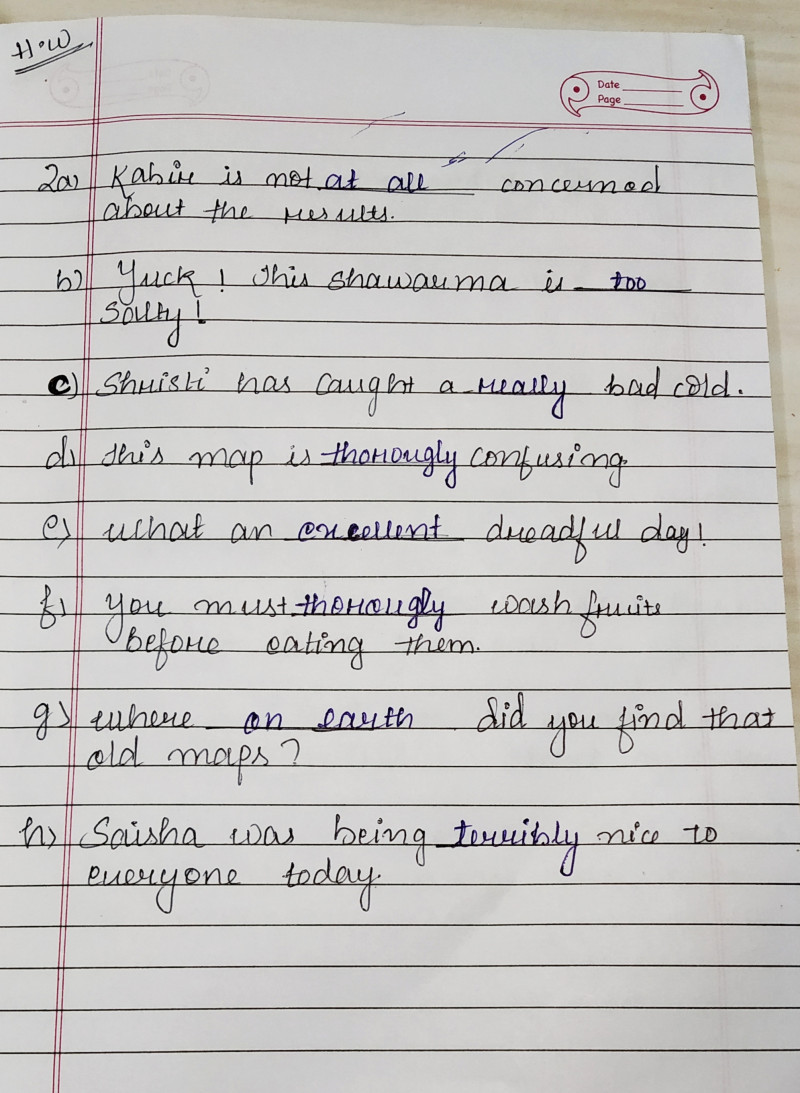 H.W
Date
Page
2a) Kabir is not at all concerned
about the results.
b) Yuck! This shawarma is too
salty!
c) Shristi has caught a really bad cold.
d) This map is thorougly confusing.
e) What an excellent dreadful day!
f) You must thorougly wash fruits
before eating them.
g) Where on earth did you find that
old maps?
h) Saisha was being terribly nice to
everyone today.